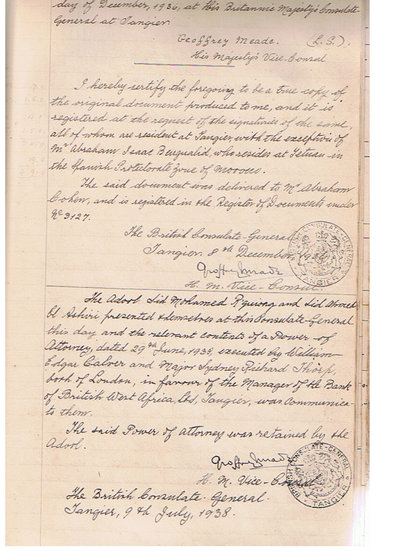 day of December, 1936, at His Britannic Majesty's Consulate
General at Tangier.
Geoffrey Meade. (L.S.).
His Majesty's Vice-Consul
I hereby certify the foregoing to be a true copy of
the original document produced to me, and it is
registered at the request of the signatories of the same
all of whom are resident at Tangier, with the exception of
Mr Abraham Isaac Benqualid, who resides at Tetuan in
the Spanish Protectorate Zone of Morocco.
The said document was delivered to Mr Abraham
Cohen, and is registered in the Register of Documents under
No 3127.
The British Consulate-General
Tangier 8th December,
Geoffrey Meade
H. M. Vice-Consul.
The Adool Sid Mohamed and Sid Ahmed
El Ashiri presented themselves at this Consulate-General
this day and the relevant contents of a Power of
Attorney, dated 29th June, 1938, executed by William
Edgar Calver and Major Sydney Richard Thorp,
both of London, in favour of the Manager of the Bank
of British West Africa, Ltd, Tangier, was communica-
to them.
The said Power of Attorney was retained by the
Adool.
Geoffrey Meade
H. M. Vice-Consul
The British Consulate-General.
Tangier, 9th July, 1938.
CONSULATE-GENERAL
TANGIER
BRITISH CONSULATE-GENERAL
TANGIER